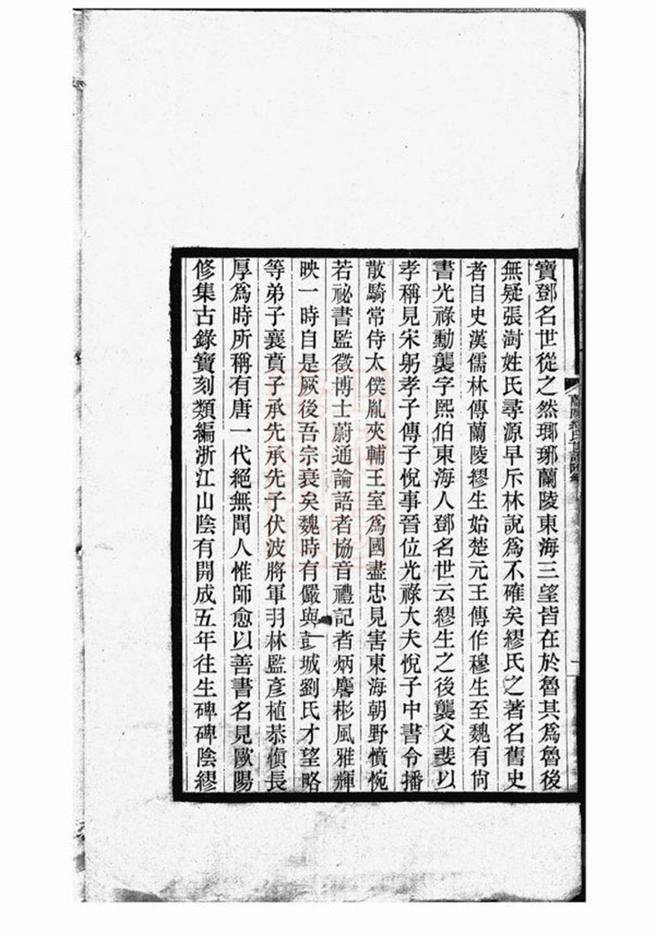 寶鄧名世從之然瑯琊蘭陵東海三望皆在於魯其爲魯後
無疑張澍姓氏尋源早斥林說爲不確矣繆氏之著名舊史
者自史漢儒林傳蘭陵繆生始楚元王傳作穆生至魏有尙
書光祿勳襲字熙伯東海人鄧名世云繆生之後襲父斐以
孝稱見宋躬孝子傳子悅事晉位光祿大夫悅子中書令播
散騎常侍太僕胤夾輔王室爲國盡忠見害東海朝野憤惋
若祕書監徵博士蔚通論語者協音禮記者炳麐彬風雅輝
映一時自是厥後吾宗衰矣魏時有儼與彭城劉氏才望略
等弟子襄賁子承先承先子伏波將軍羽林監彥植恭槙長
厚爲時所稱有唐一代絕無聞人惟師愈以善書名見歐陽
修集古錄寶刻類編浙江山陰有開成五年往生碑碑陰繆